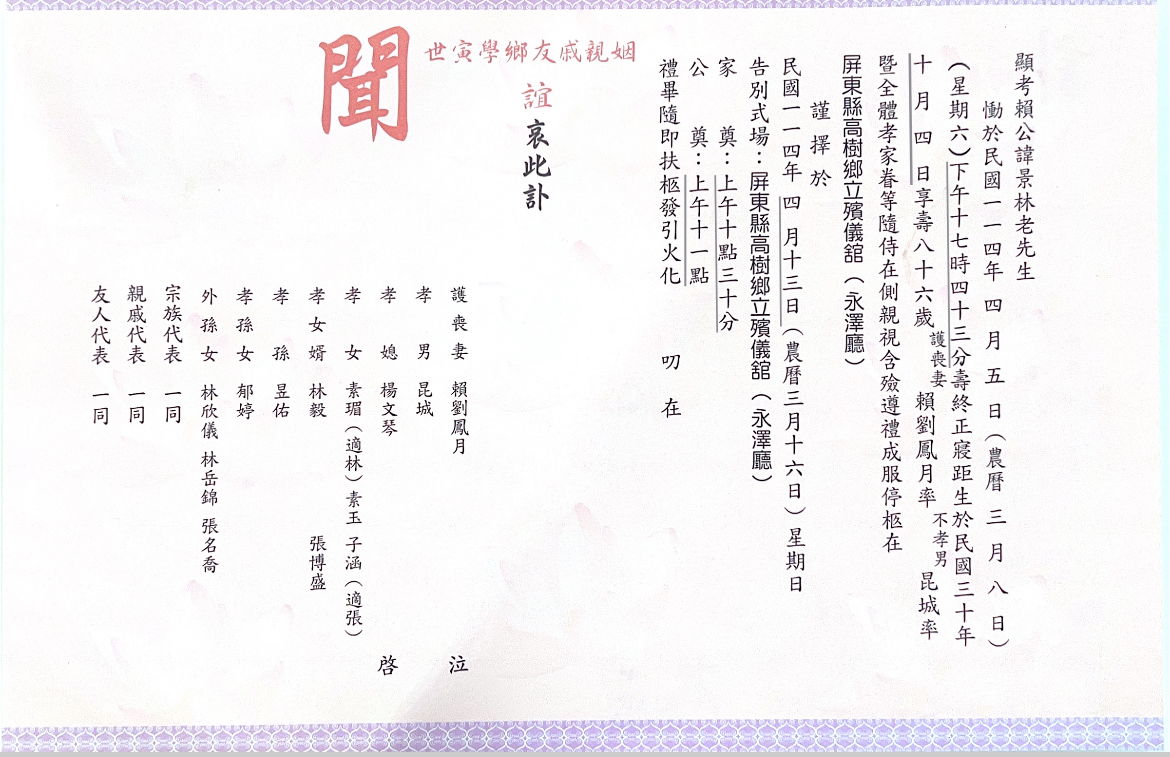 顯考賴公諱景林老先生
慟於民國一一四年四月五日（農曆三月八日）
（星期六）下午十七時四十三分壽終正寢距生於民國三十年
十月四日享壽八十六歲護喪妻賴劉鳳月率不孝男昆城率
暨全體孝家眷等隨侍在側親視含殮遵禮成服停柩在
屏東縣高樹鄉立殯儀舘（永澤廳）
謹擇於
民國一一四年四月十三日（農曆三月十六日）星期日
告別式場：屏東縣高樹鄉立殯儀舘（永澤廳）
家奠：上午十點三十分
公奠：上午十一點
禮畢隨即扶柩發引火化 叨在
姻親戚友鄉學寅世
誼哀此訃
聞
護喪妻 賴劉鳳月 泣
孝男 昆城
孝媳 楊文琴 啓
孝女 素瑂（適林）素玉 子涵（適張）
孝女婿 林毅 張博盛
孝孫 昱佑
孝孫女 郁婷
外孫女 林欣儀 林岳錦 張名喬
宗族代表 一同
親戚代表 一同
友人代表 一同